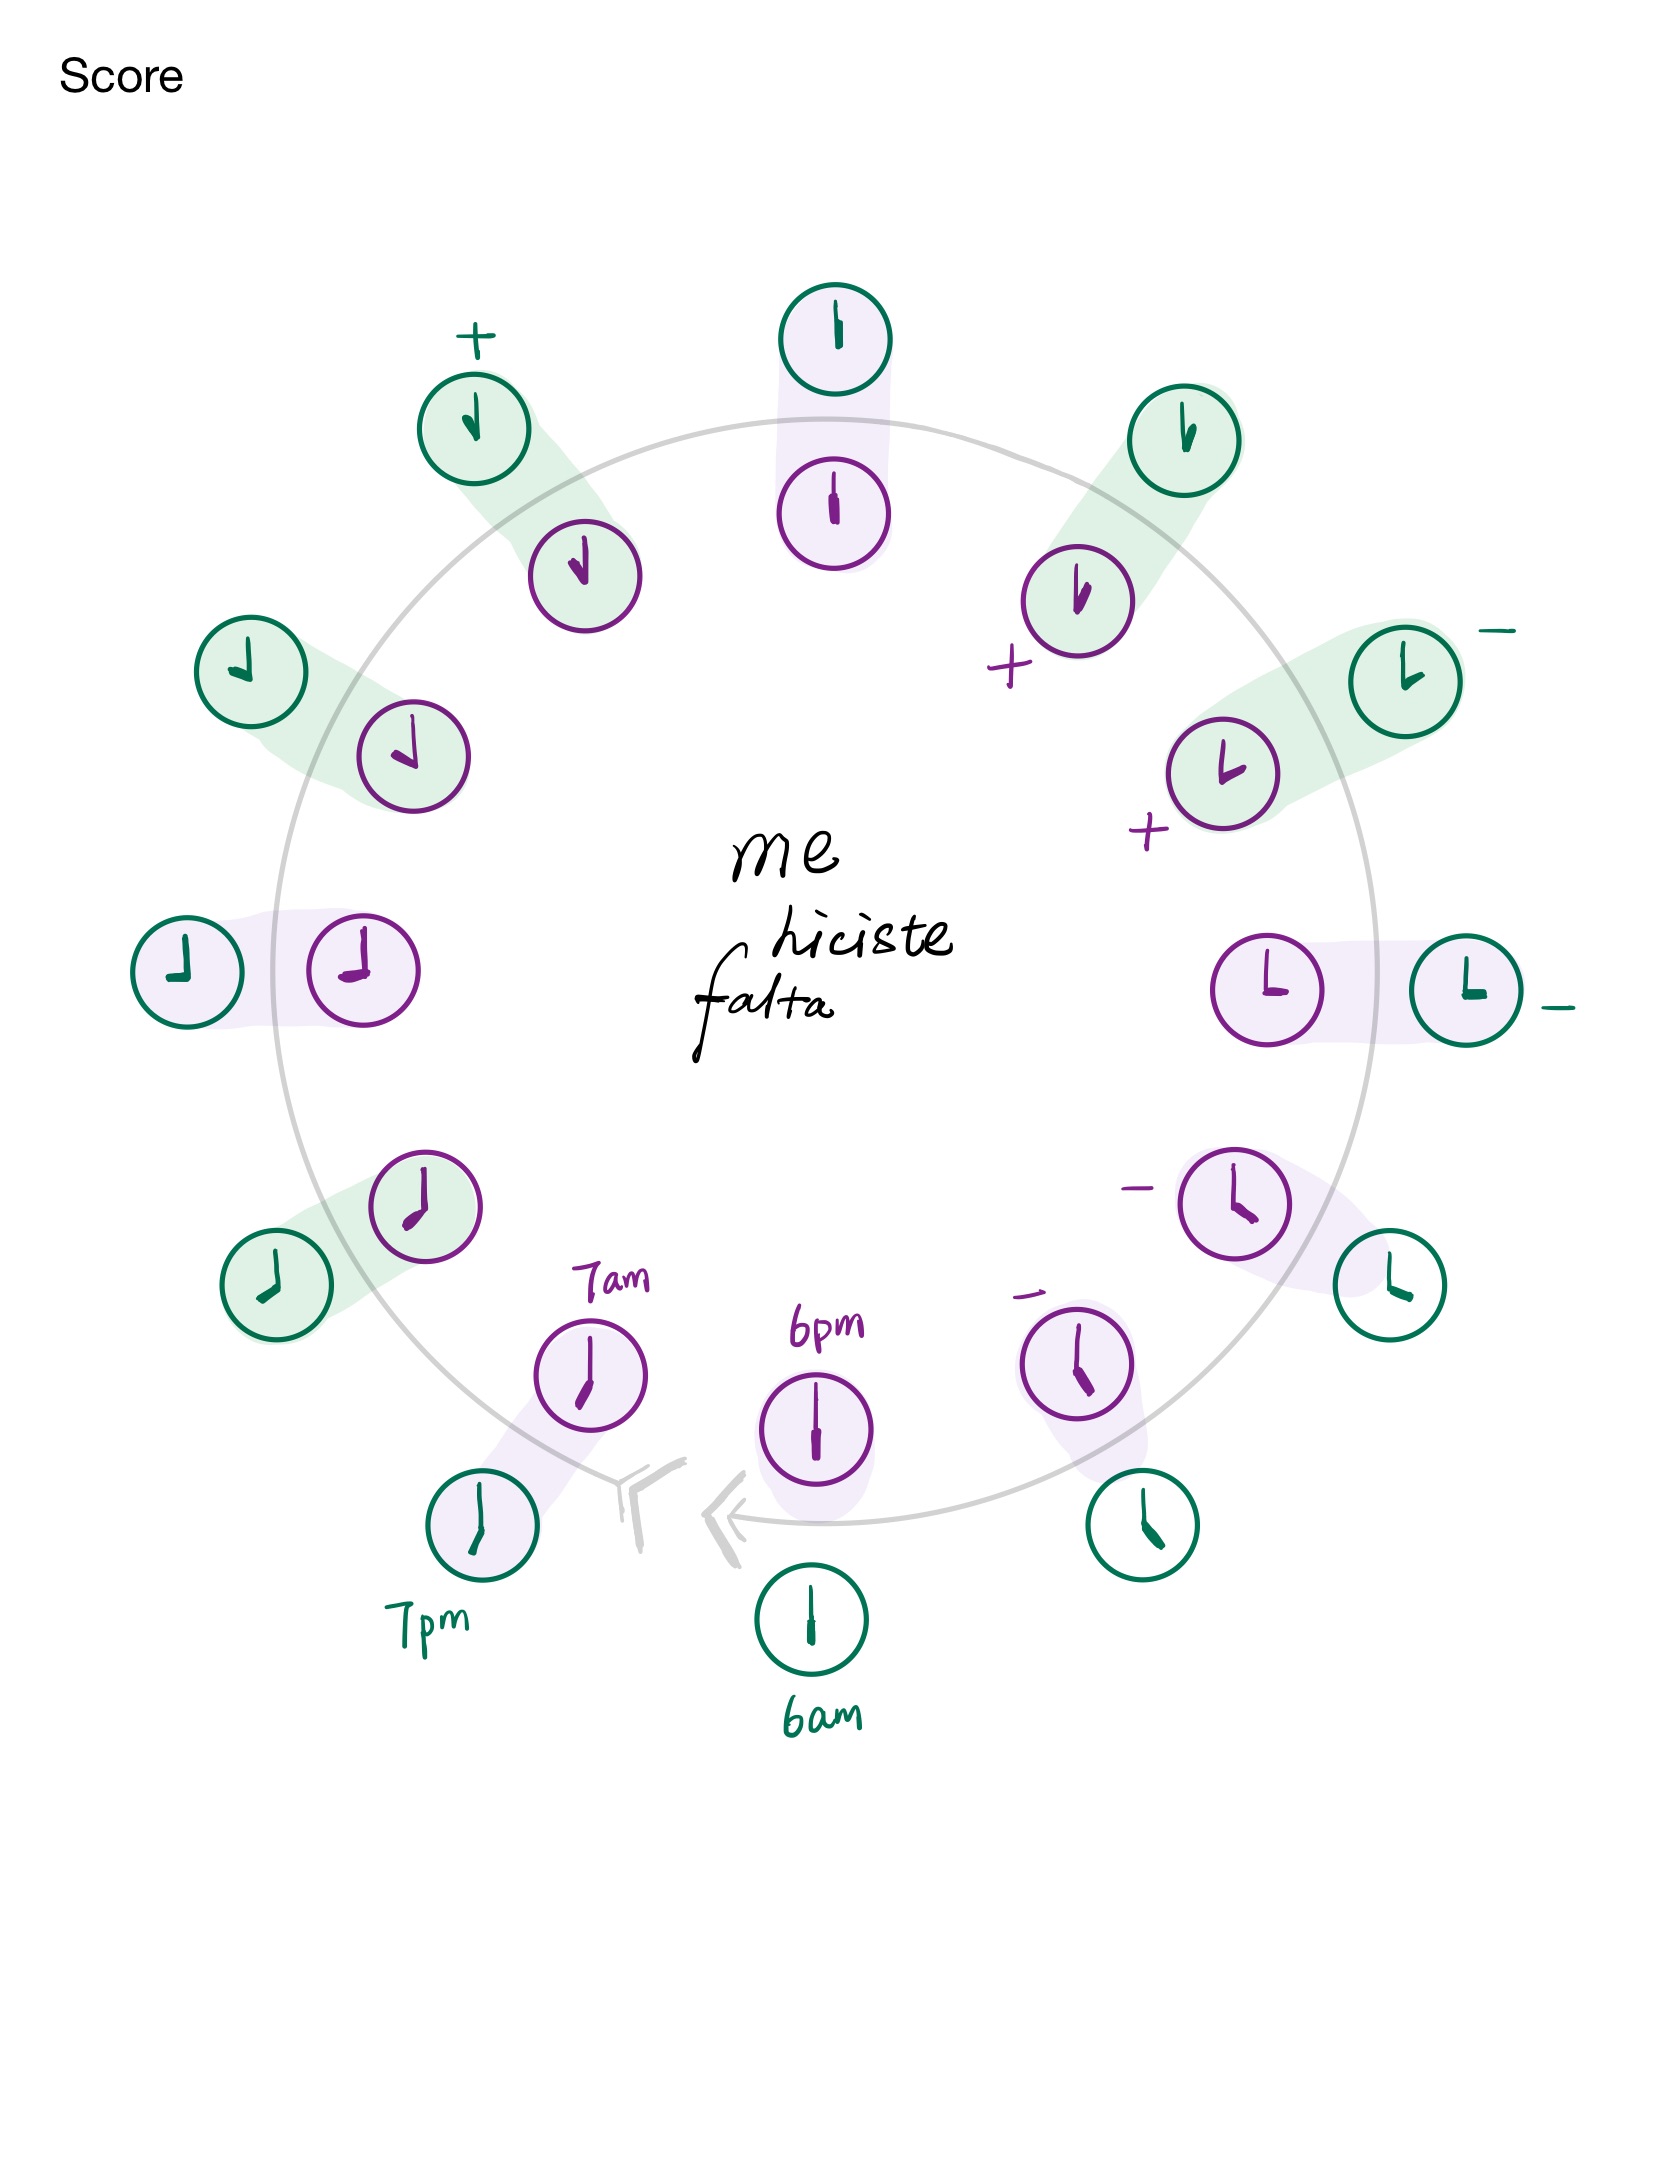 Score
+
+
-
+
me
hiciste
falta
-
-
-
7am
6pm
7pm
6am